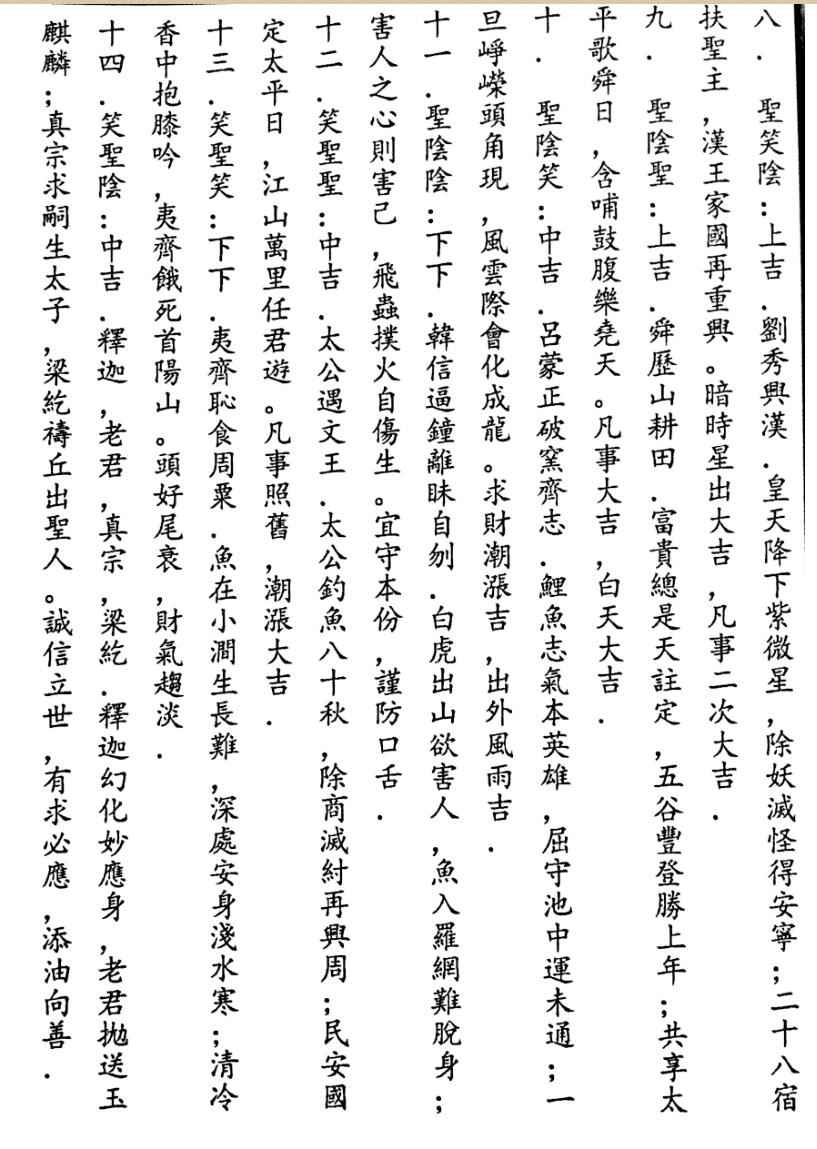 八．　聖笑陰：上吉．劉秀興漢．皇天降下紫微星，除妖滅怪得安寧；二十八宿
扶聖主，漢王家國再重興。暗時星出大吉，凡事二次大吉．
九．　聖陰聖：上吉．舜歷山耕田．富貴總是天註定，五谷豐登勝上年；共享太
平歌舜日，含哺鼓腹樂堯天。凡事大吉，白天大吉．
十．　聖陰笑：中吉．呂蒙正破窯齊志．鯉魚志氣本英雄，屈守池中運未通；一
旦崢嶸頭角現，風雲際會化成龍。求財潮漲吉，出外風雨吉．
十一．聖陰陰：下下．韓信逼鐘離昧自刎．白虎出山欲害人，魚入羅網難脫身；
害人之心則害己，飛蟲撲火自傷生。宜守本份，謹防口舌．
十二．笑聖聖：中吉．太公遇文王．太公釣魚八十秋，除商滅紂再興周；民安國
定太平日，江山萬里任君遊。凡事照舊，潮漲大吉．
十三．笑聖笑：下下．夷齊恥食周粟．魚在小澗生長難，深處安身淺水寒；清冷
香中抱膝吟，夷齊餓死首陽山。頭好尾衰，財氣趨淡．
十四．笑聖陰：中吉．釋迦，老君，真宗，梁紇．釋迦幻化妙應身，老君拋送玉
麒麟；真宗求嗣生太子，梁紇禱丘出聖人。誠信立世，有求必應，添油向善．